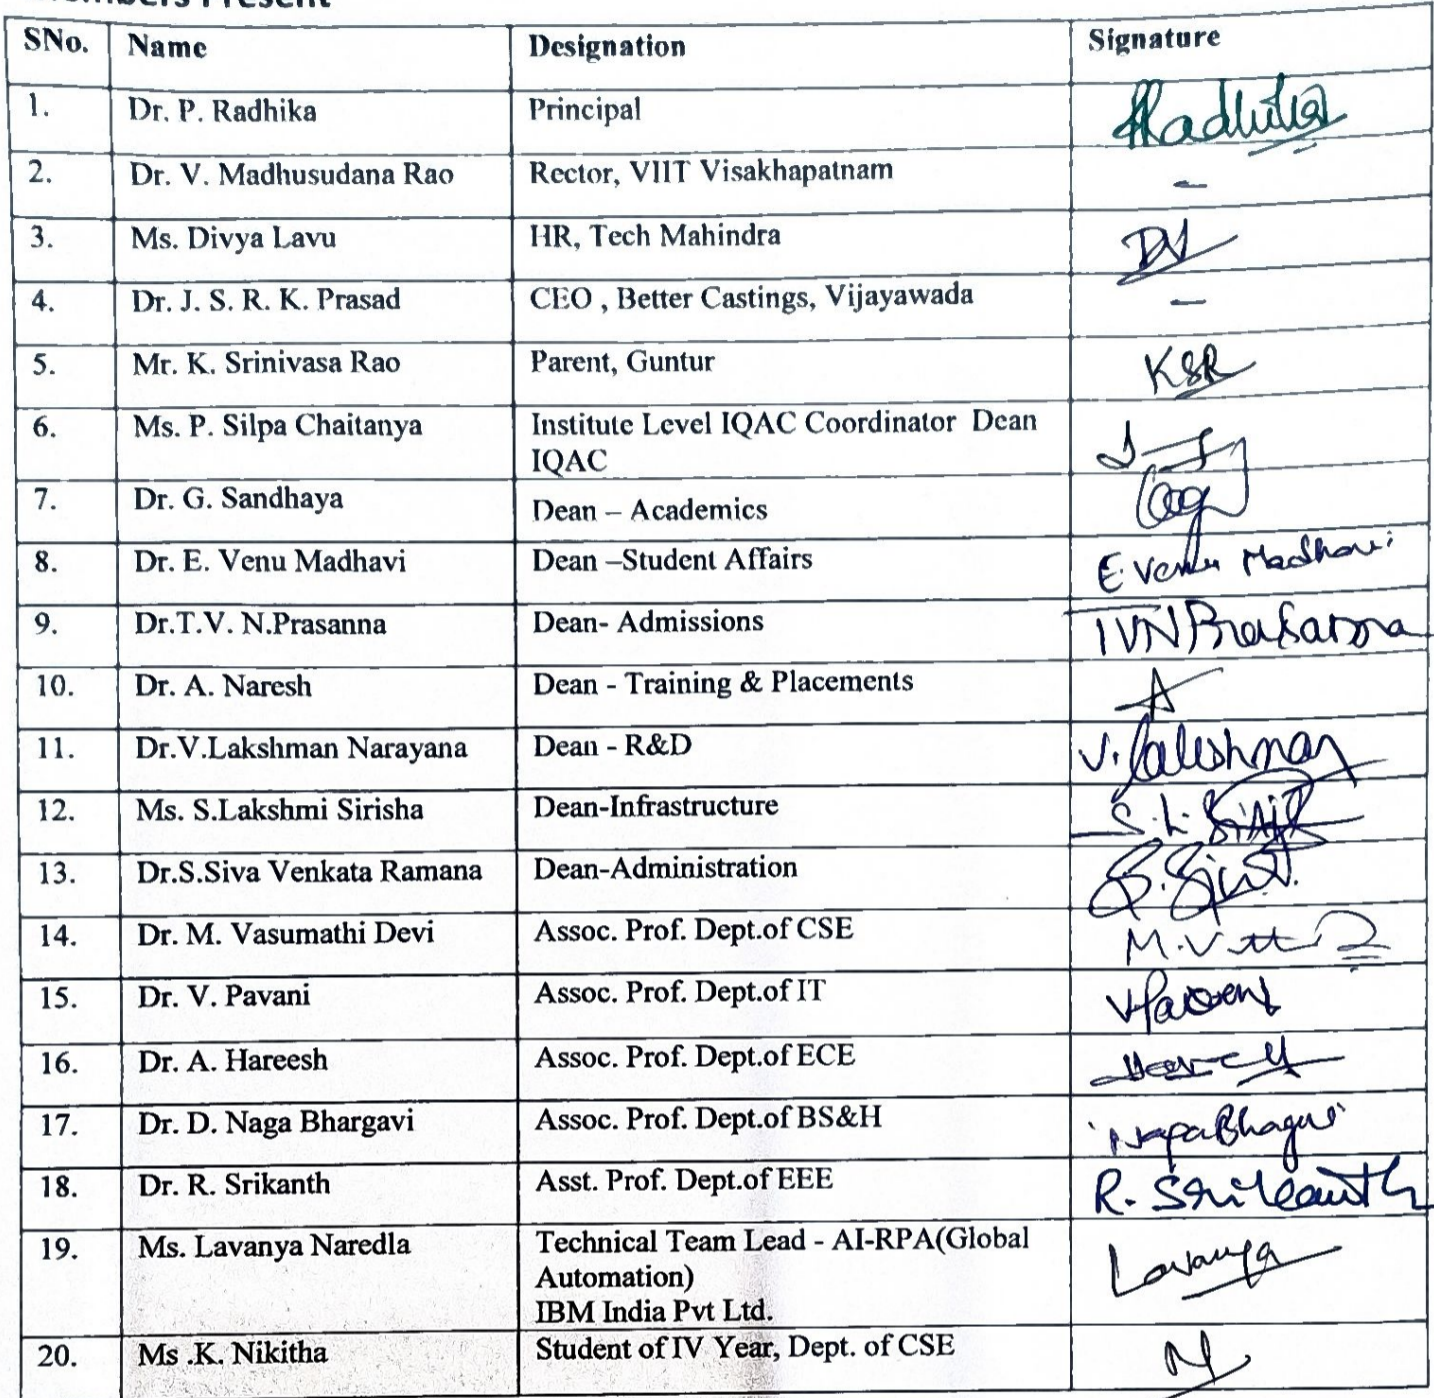 Members Present
SNo. Name Designation Signature
1. Dr. P. Radhika Principal Radhika
2. Dr. V. Madhusudana Rao Rector, VIIT Visakhapatnam –
3. Ms. Divya Lavu HR, Tech Mahindra
4. Dr. J. S. R. K. Prasad CEO , Better Castings, Vijayawada –
5. Mr. K. Srinivasa Rao Parent, Guntur KSR
6. Ms. P. Silpa Chaitanya Institute Level IQAC Coordinator Dean
IQAC
7. Dr. G. Sandhaya Dean – Academics
8. Dr. E. Venu Madhavi Dean –Student Affairs E. Venu Madhavi
9. Dr.T.V. N.Prasanna Dean- Admissions TVN Prasanna
10. Dr. A. Naresh Dean - Training & Placements
11. Dr.V.Lakshman Narayana Dean - R&D V. Lakshman
12. Ms. S.Lakshmi Sirisha Dean-Infrastructure S. L.
13. Dr.S.Siva Venkata Ramana Dean-Administration
14. Dr. M. Vasumathi Devi Assoc. Prof. Dept.of CSE M. V
15. Dr. V. Pavani Assoc. Prof. Dept.of IT V Pavani
16. Dr. A. Hareesh Assoc. Prof. Dept.of ECE
17. Dr. D. Naga Bhargavi Assoc. Prof. Dept.of BS&H
18. Dr. R. Srikanth Asst. Prof. Dept.of EEE R. Srikanth
19. Ms. Lavanya Naredla Technical Team Lead - AI-RPA(Global Lavanya
Automation)
IBM India Pvt Ltd.
20. Ms .K. Nikitha Student of IV Year, Dept. of CSE